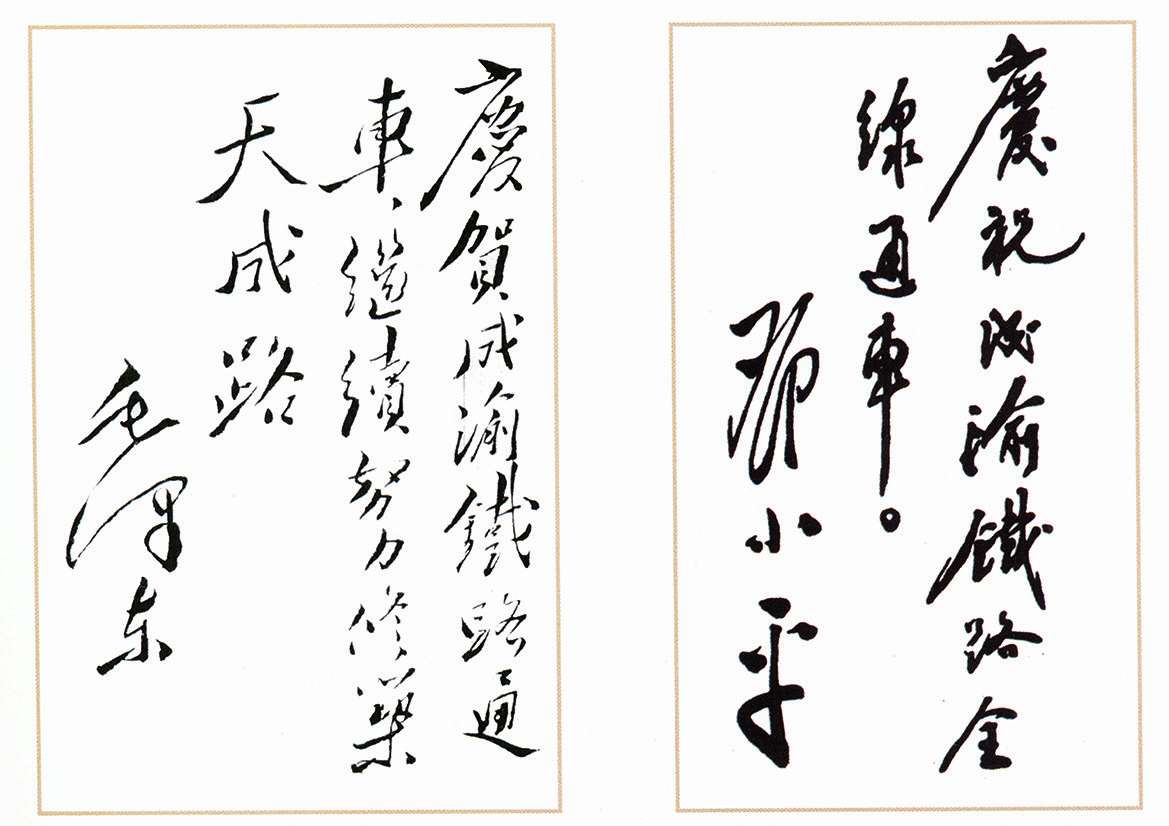 慶祝成渝鐵路全
線通車。
鄧小平
慶賀成渝鐵路通
車、繼續努力修築
天成路
毛澤东